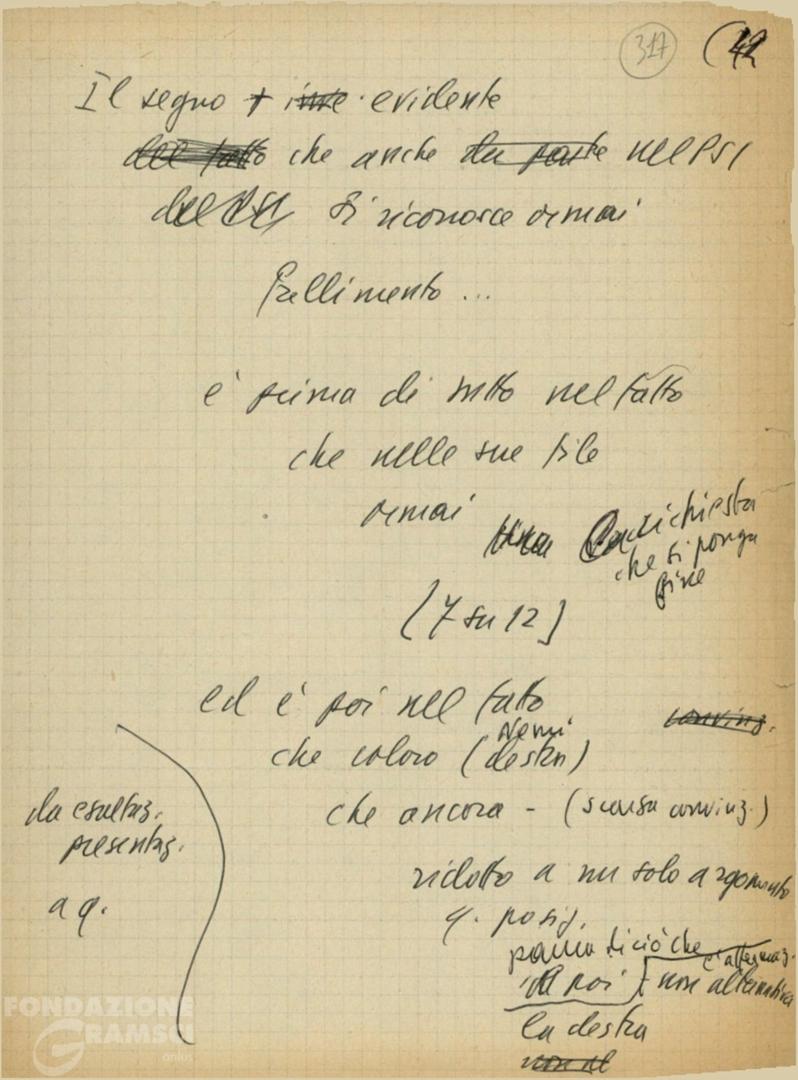 317 (42
Il segno + evidente
del fatto che anche da parte nel PSI
del PSI si riconosce ormai
fallimento ...
è prima di tutto nel fatto
che nelle sue file
ormai una richiesta
che si ponga
fine
[7 su 12]
ed è poi nel fatto
conving.
che coloro (destra)
Nenni
che ancora - (scarsa convinz.)
da esultaz.
presentaz.
a q.
ridotto a un solo argomento
q. posiz.
paura di ciò che
non alternativa
la destra